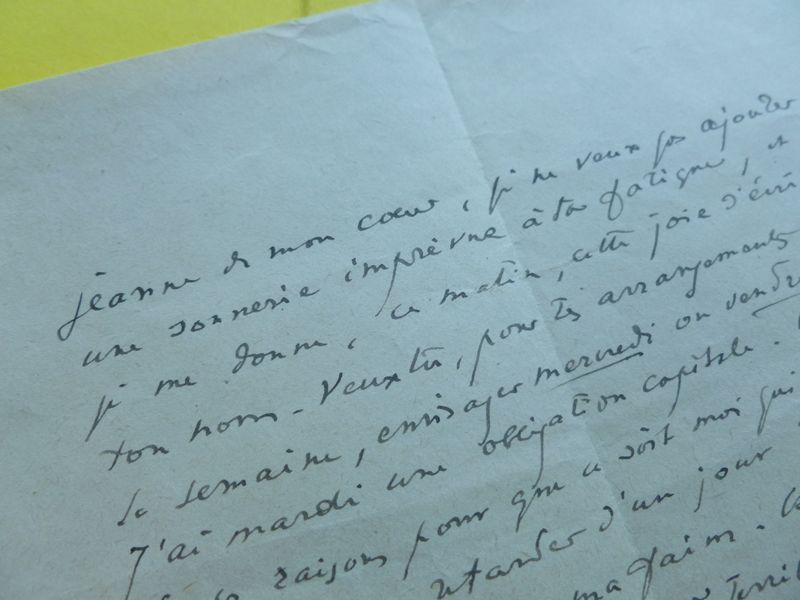 jeanne de mon cœur, je ne veux pas ajouter
une sonnerie imprévue à ta fatigue, et
je me donne, ce matin, cette joie d'écri
ton nom. Veux-tu, pour tes arrangements
la semaine, envisager mercredi ou vendre
J'ai mardi une obligation capitale.
raisons pour que ce soit moi qui
retarder d'un jour
ma faim.